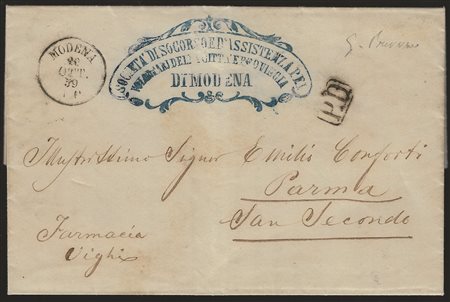 MODENA
28
OTT.
59
SOCIETÀ DI SOCORSO E D'ASSISTENZA PEI
VOLONTARI DELLA CITTÀ E PROVINCIA
DI MODENA
P.D.
Illustrissimo Signor Emilio Conforti
Parma
San Secondo
Farmacia
Vighi